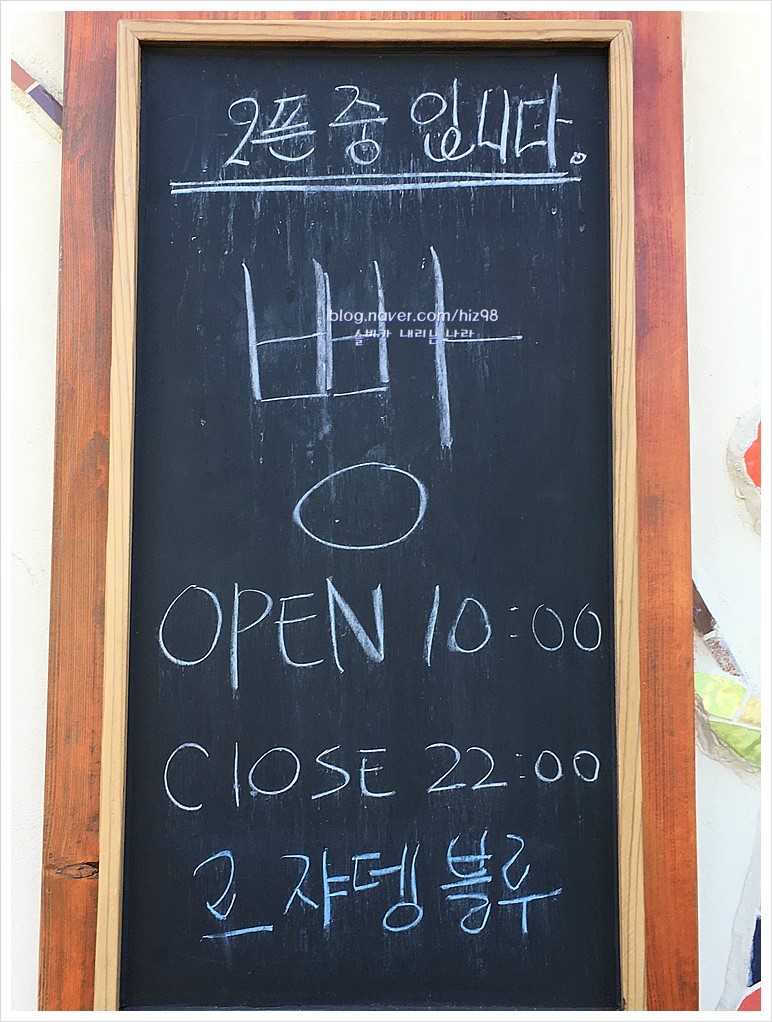 오픈 중 입니다.
빵
blog.naver.com/hiz98
슬비가 내리는 나라
OPEN 10:00
CLOSE 22:00
르 쟈뎅 블루